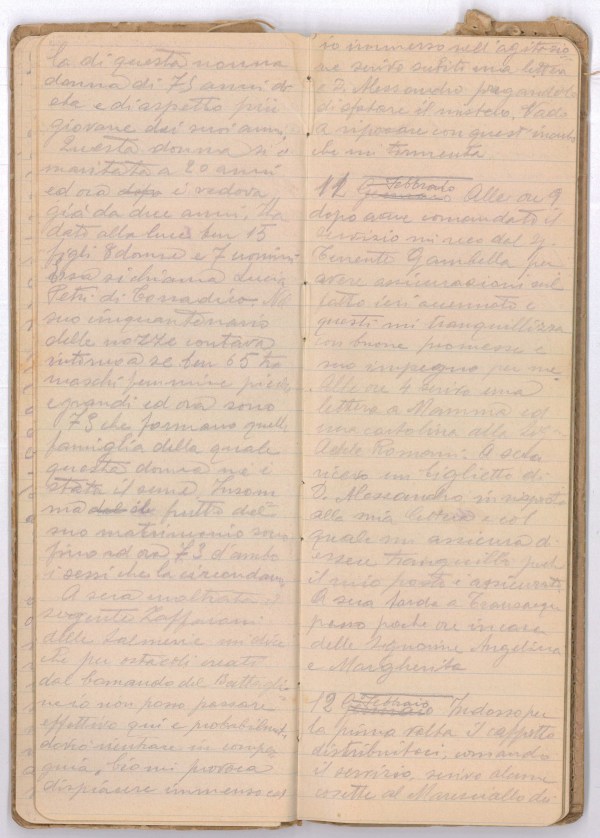 la di questa nonna
donna di 75 anni di
eta e di aspetto più
giovane dei suoi anni
Questa donna si è
maritata a 20 anni
ed ora è vedova
già da due anni. Ha
dato alla luce ben 15
figli 8 donne e 7 uomini
Essa si chiama Lucia
Petri di
suo cinquantenario
delle nozze contava
intorno a se ben 65 tra
maschi femmine piccoli
e grandi ed ora sono
73 che formano quella
famiglia della quale
questa donna ne è
stata il seme Insom
ma dal di frutto del
suo matrimonio sono
fino ad ora 73 d'ambo
i sessi che la circondano
A sera inoltrata il
sergente Zaffarani
delle Salmerie mi dice
che per ostacoli creati
dal Comando del Battaglio
ne io non posso passare
effettivo qui e probabilment
dovrò rientrare in compa
gnia, ciò mi provoca
dispiacere immenso ed
io immerso nell'agitazio
ne scrivo subito una lettera
a D. Alessandro pregandolo
di sfatare il mistero. Vado
a riposare con quest'
che mi tormenta
11 Gennaio Febbraio Alle ore 9
dopo aver comandato il
servizio mi reco dal S.
Tenente Gambella per
avere assicurazioni sul
fatto ieri accennato e
questi mi tranquillizza
con buone promesse e
suo impegno per me
Alle ore 4 scrivo una
lettera a Mamma ed
una cartolina alla
Adele Romani. A sera
ricevo un biglietto di
D. Alessandro in risposta
alla mia lettera e col
quale mi assicura di
essere tranquillo perchè
il mio posto è assicurato
A sera tardi a
passo poche ore in casa
delle Signorine Angelina
e Margherita
12 Gennaio Febbraio Indosso per
la prima volta il cappotto
distribuitoci, comando
il servizio, scrivo alcune
cosette al Maresciallo di